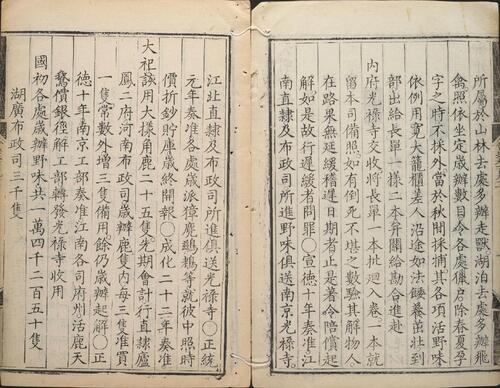 所屬於山林去處多辦走獸湖泊去處多辦飛
禽照依坐定歲辦數目令各處獵戶除春夏孕
字之時不採外當於秋間採捕其各項活野味
依例用寬大籠櫃差人沿途如法餧養茁壯到
部出給長單一樣二本并關給勘合進赴
內府光祿寺交收將長單一本批迴入卷一本就
留本司備照如有倒死不堪之數驗其解物人
在路果無延緩稽遲日期者止是著令陪償起
解如是故行遲緩者問罪○宣德十年奏准江
南直隸及布政司所進野味俱送南京光祿寺
江北直隸及布政司所進俱送光祿寺○正統
元年奏准各處歲派獐鹿鷀鶘等就彼中照時
價折鈔貯庫歲終開報○成化二十二年奏准
大祀該用大樣角鹿二十五隻先期會計行直隸廬
鳳二府河南布政司歲辦鹿隻內每三隻准買
一隻常數外增三隻備用餘仍歲辦起解○正
德十年南京工部奏准江南各司府州活鹿天
鵝價銀徑解工部轉發光祿寺收用
國初各處歲辦野味共一萬四千二百五十隻
湖廣布政司三千隻